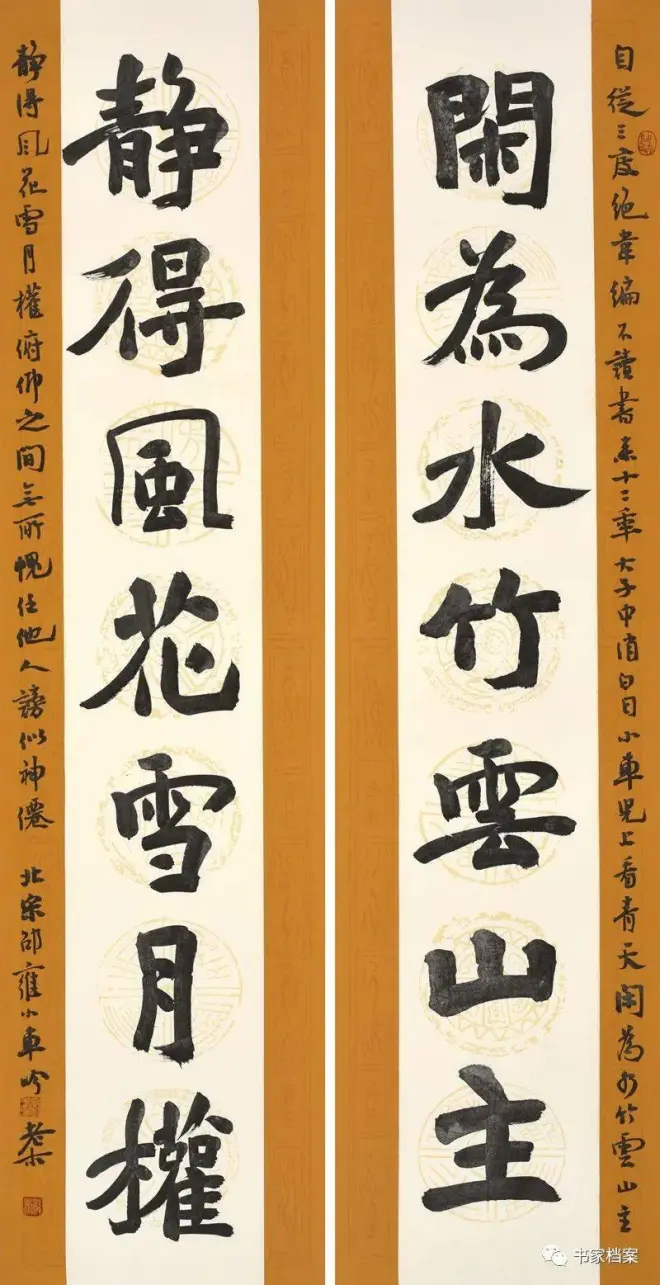 自從三度絕韋編不讀書來十二季大子中消白日小車兒上看青天閑為水竹雲山主
閑為水竹雲山主
静得風花雪月權
静得風花雪月權俯仰之間無所愧任他人謗似神僊 北宋邵雍小車吟
书家档案